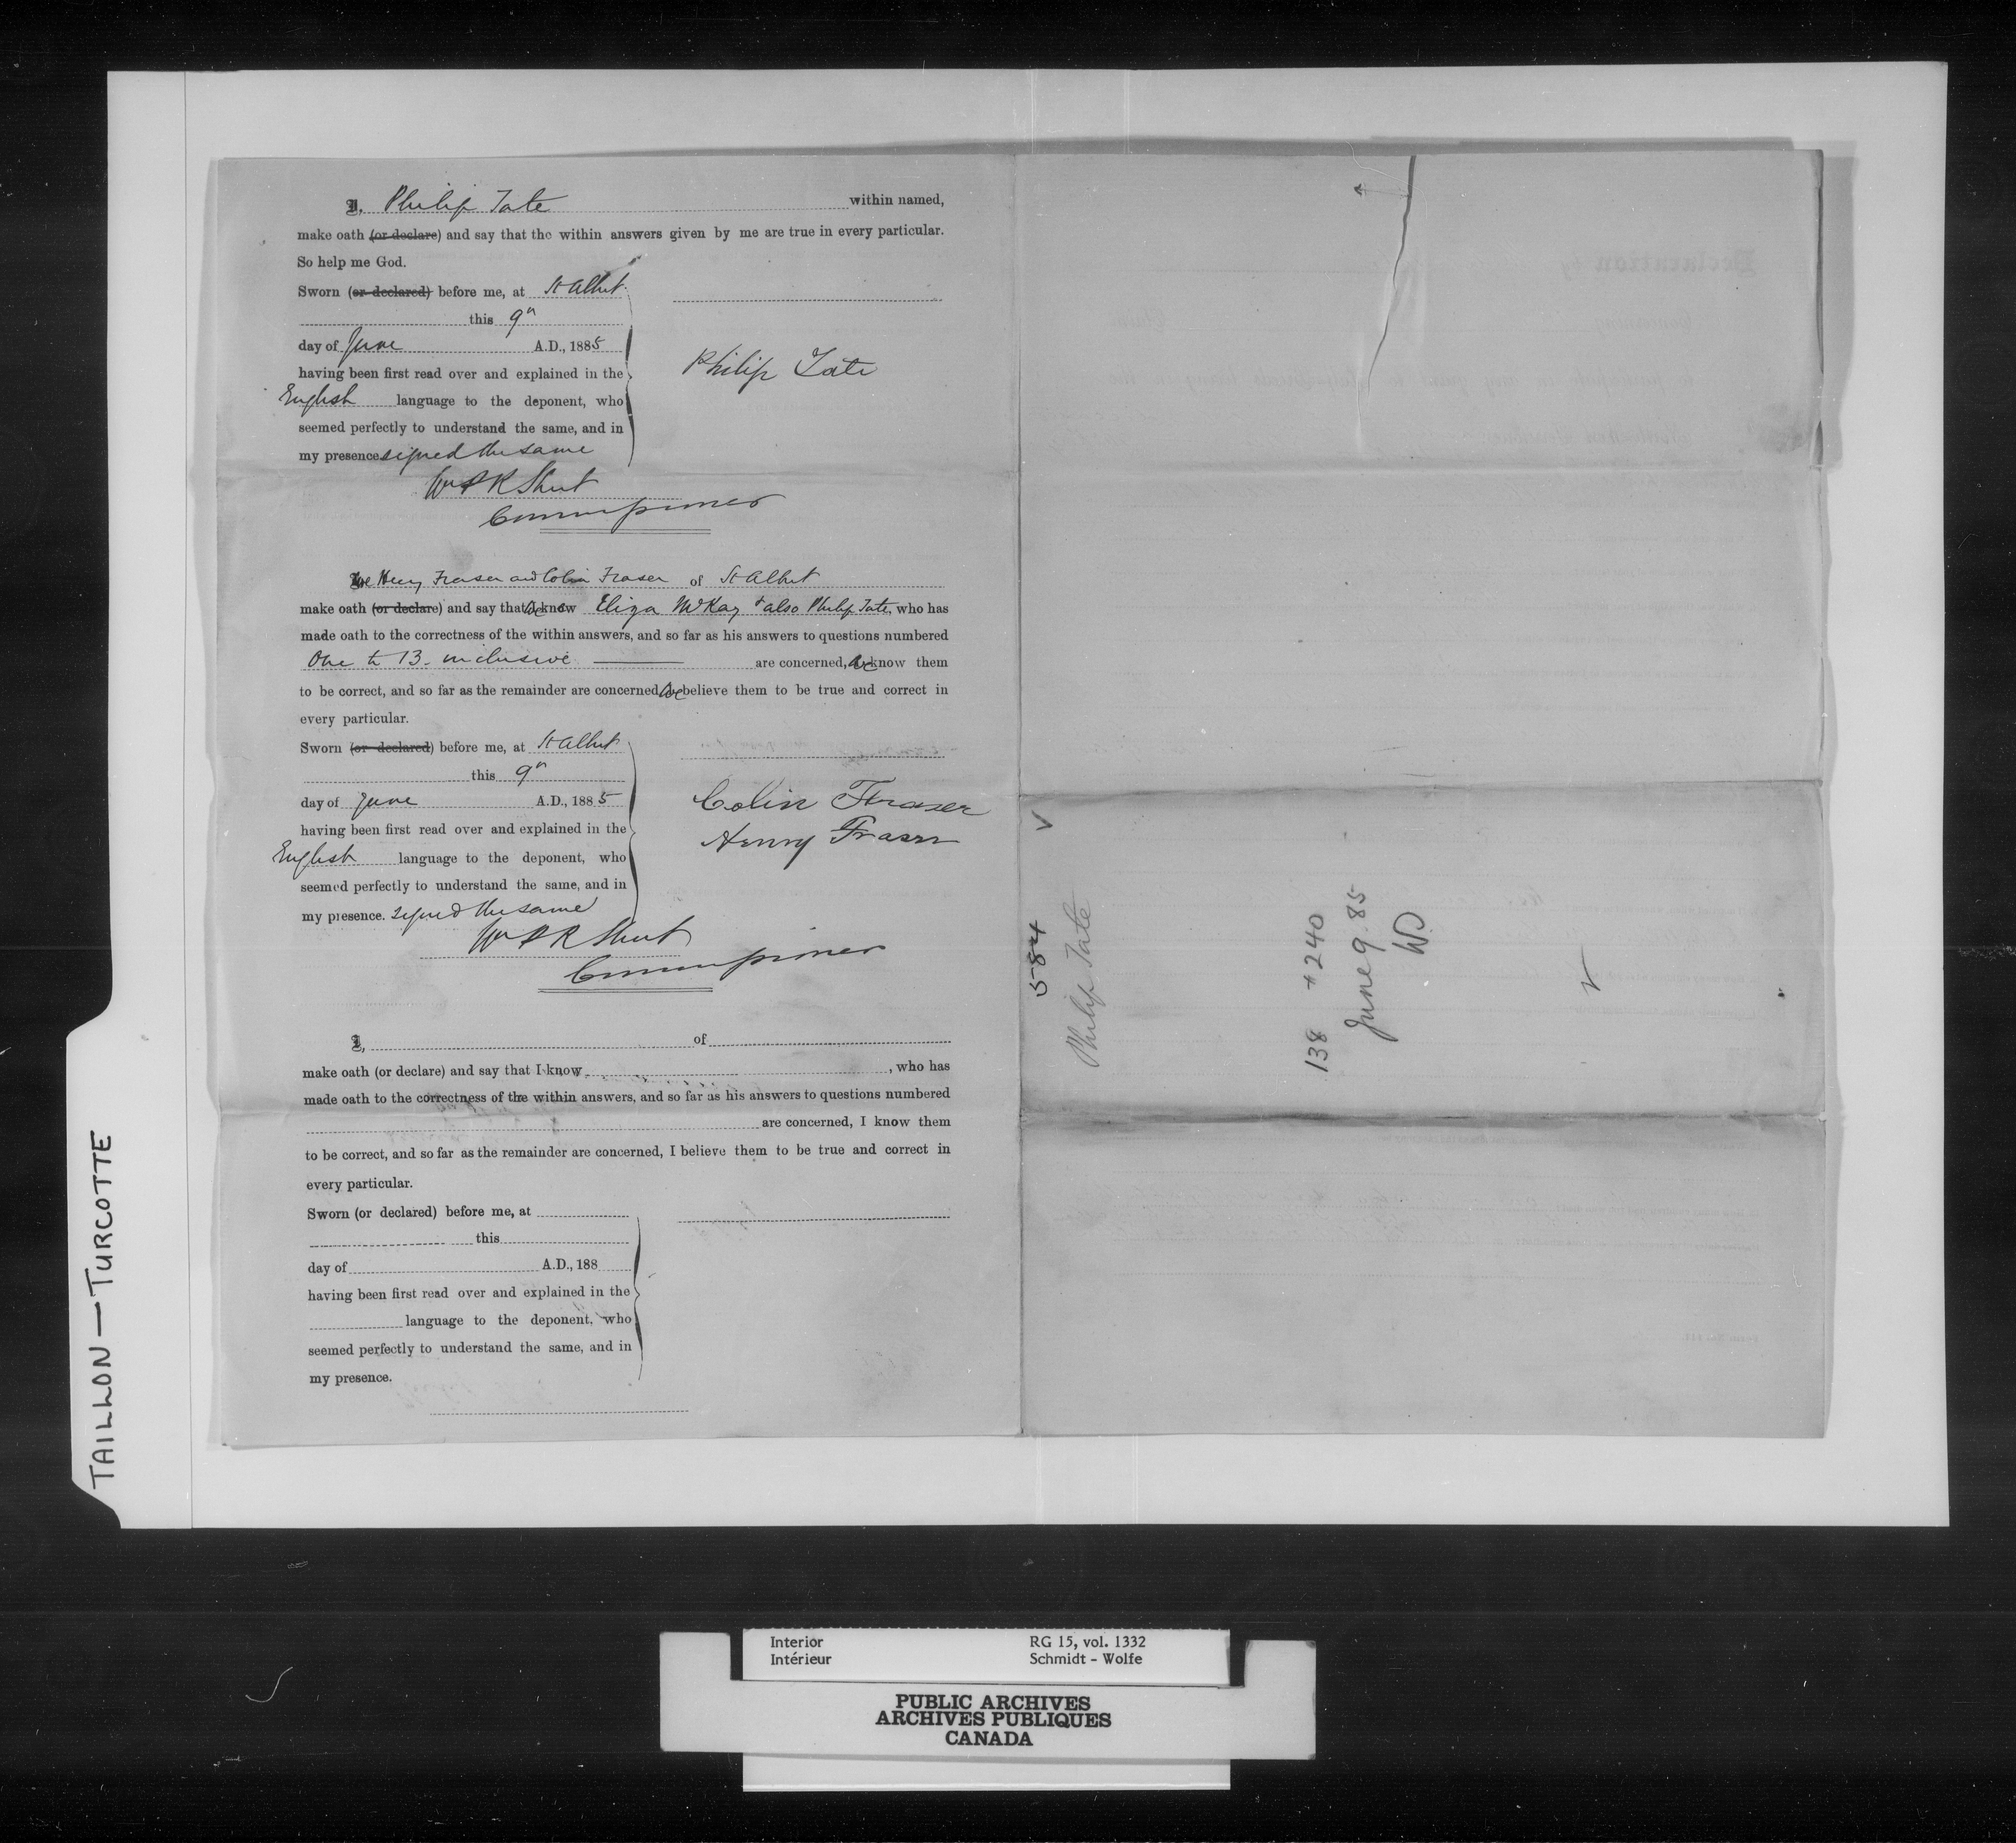 I, Philip Tate within named,
make oath (or declare) and say that the within answers given by me are true in every particular.
So help me God.
Sworn (or declared) before me, at St Albert
this 9th
day of June A.D., 1885
having been first read over and explained in the
English language to the deponent, who
seemed perfectly to understand the same, and in
my presence signed the same
Philip Tate
Wm P R Street
Commissioner
We Henry Fraser and Colin Fraser of St Albert
make oath (or declare) and say that we know Eliza McKay & also Philip Tate, who has
made oath to the correctness of the within answers, and so far as his answers to questions numbered
One to 13 inclusive are concerned, we know them
to be correct, and so far as the remainder are concerned we believe them to be true and correct in
every particular.
Sworn (or declared) before me, at St Albert
this 9th
day of June A.D., 1885
having been first read over and explained in the
English language to the deponent, who
seemed perfectly to understand the same, and in
my presence. signed the same
Colin Fraser
Henry Fraser
Wm P R Street
Commissioner
I, of
make oath (or declare) and say that I know , who has
made oath to the correctness of the within answers, and so far as his answers to questions numbered
are concerned, I know them
to be correct, and so far as the remainder are concerned, I believe them to be true and correct in
every particular.
Sworn (or declared) before me, at
this
day of A.D., 188
having been first read over and explained in the
language to the deponent, who
seemed perfectly to understand the same, and in
my presence.
584
Philip Tate
138 $240
June 9. 85
TAILLON — TURCOTTE
Interior RG 15, vol. 1332
Intérieur Schmidt - Wolfe
PUBLIC ARCHIVES
ARCHIVES PUBLIQUES
CANADA